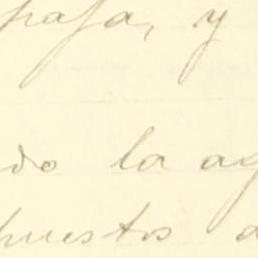 pasa, y
do la ag
puestos a